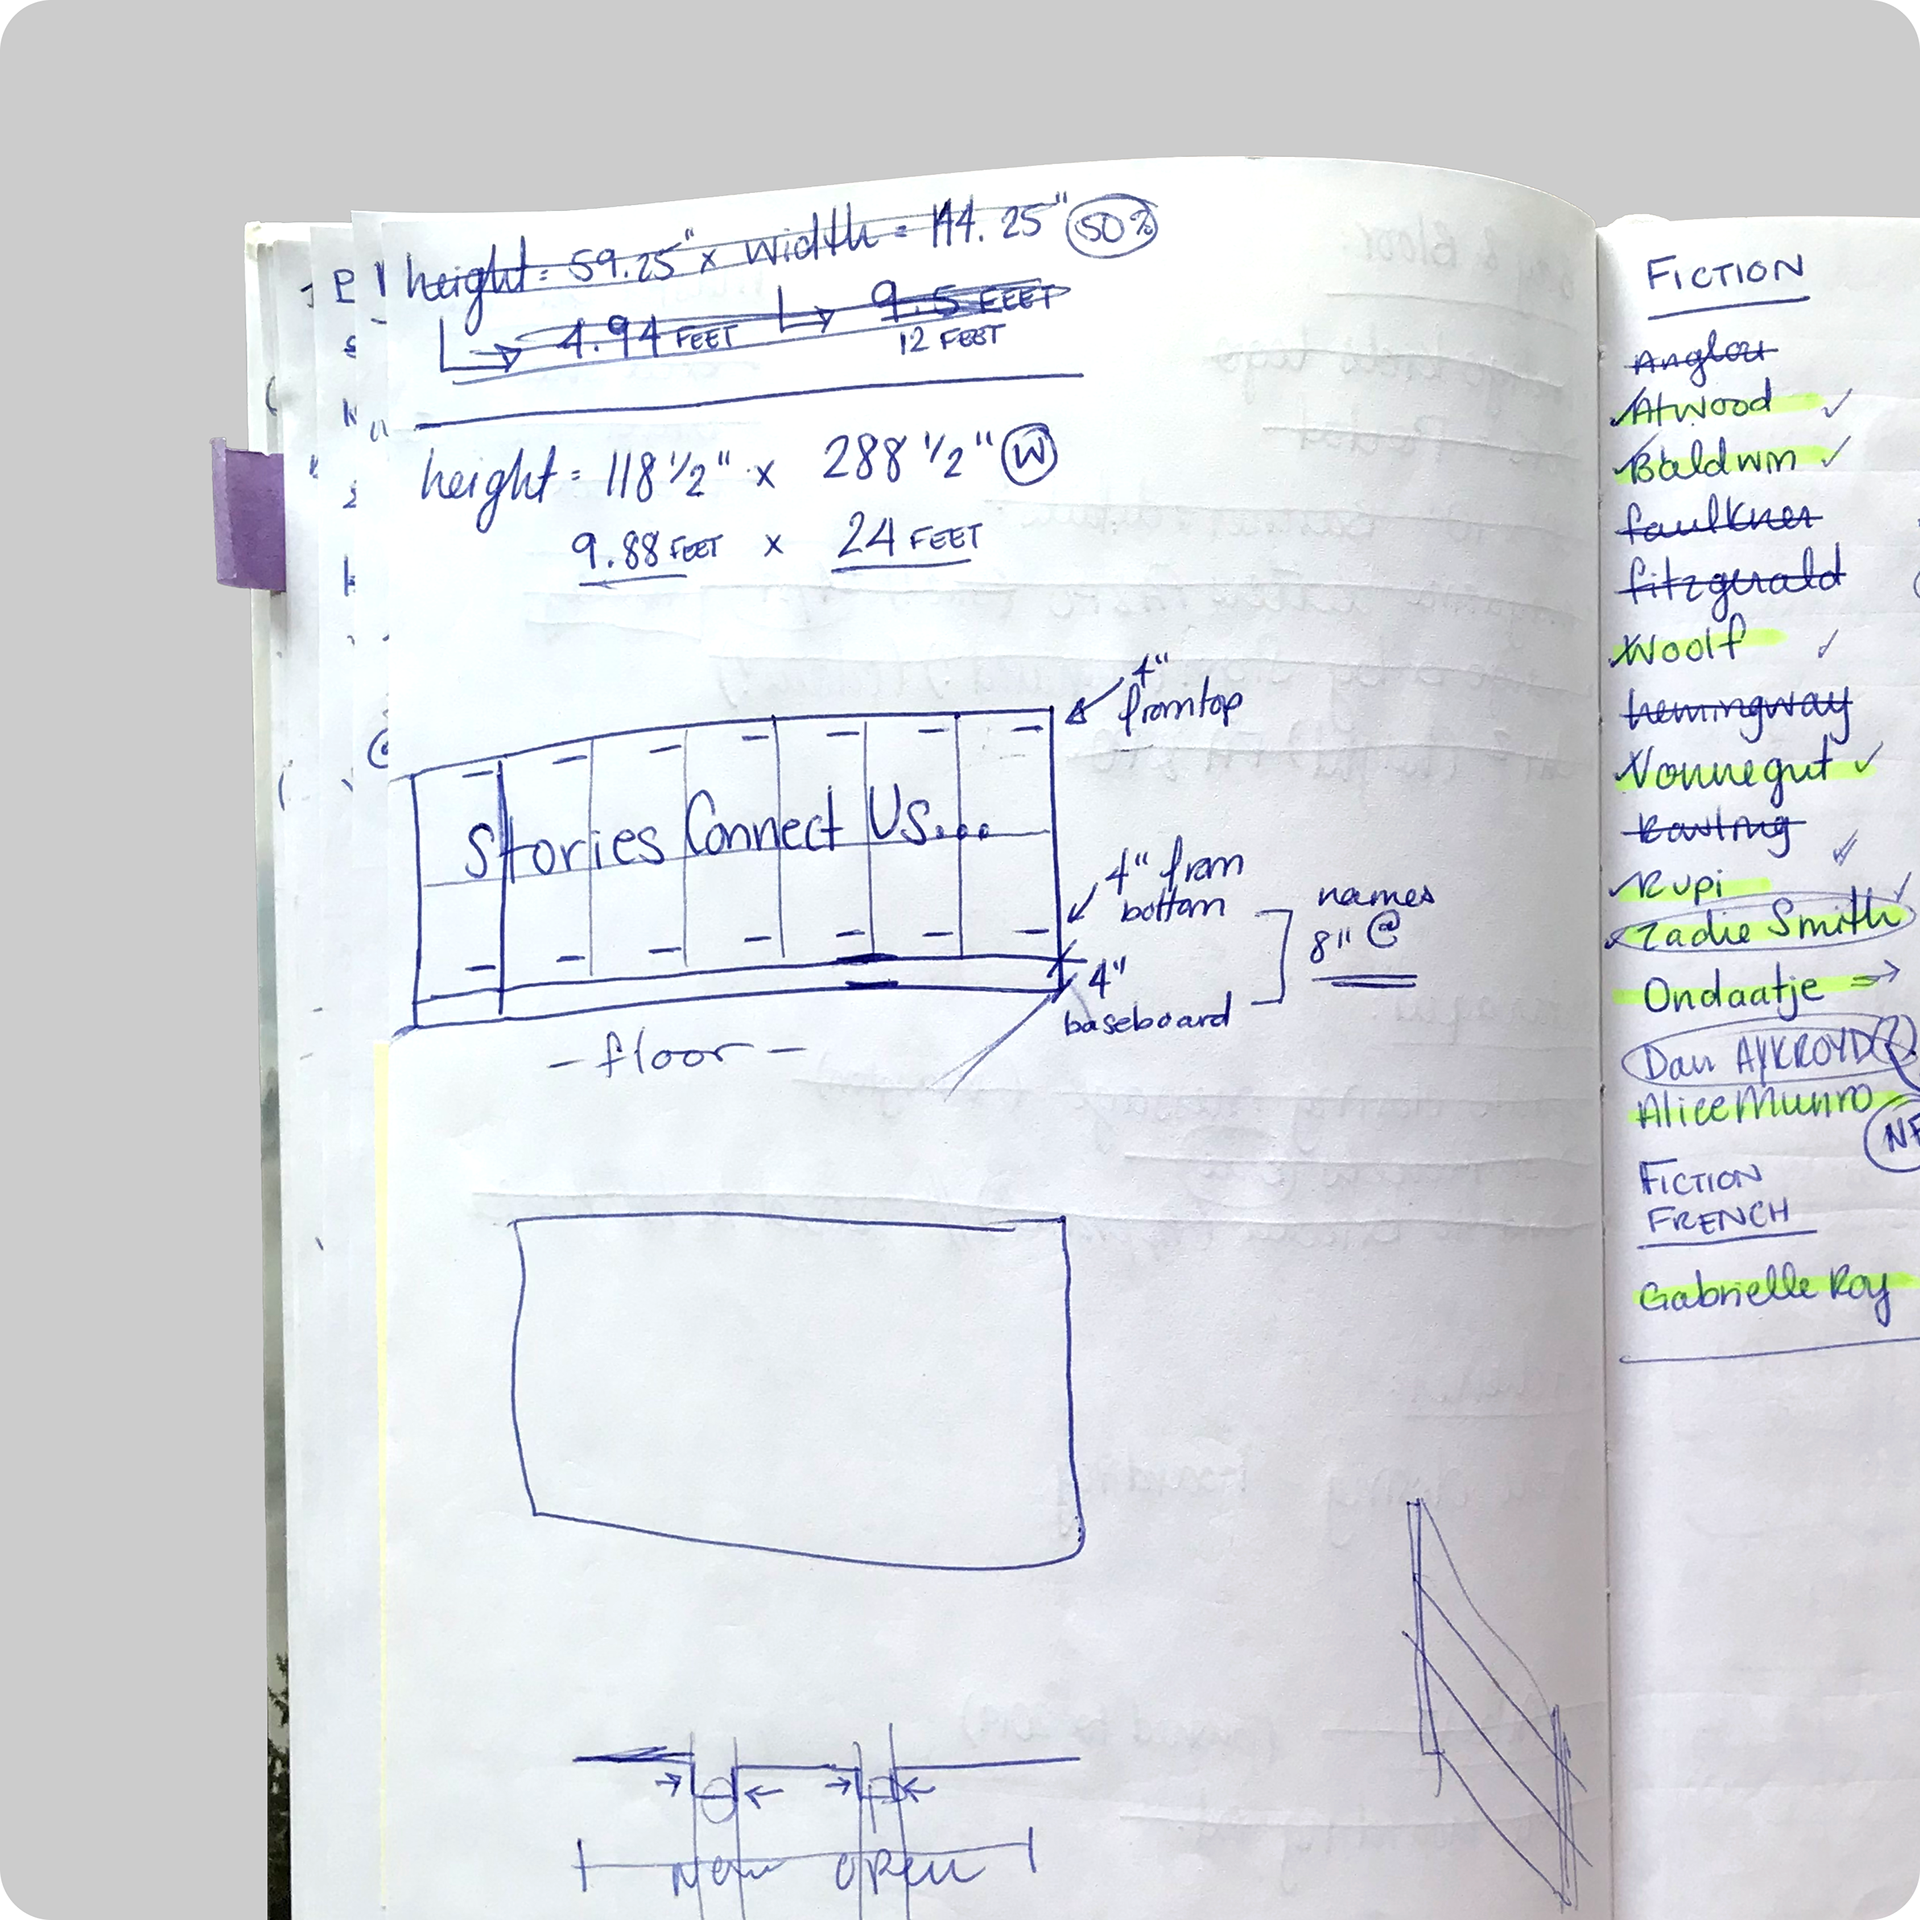 height = 59.25" x width = 144.25" 50%
4.94 FEET 9.5 FEET
12 FEET
height = 118 1/2" x 288 1/2" W
9.88 FEET x 24 FEET
4"
from top
Stories Connect Us...
4" from
bottom
4"
baseboard
names
8" @
- floor -
Now open
FICTION
Anglou
Atwood
Baldwin
faulkner
fitzgerald
Woolf
hemingway
Vonnegut
Rowling
Rupi
Zadie Smith
Ondaatje
Dan AYKROYD ?
Alice Munro
FICTION
FRENCH
Gabrielle Roy